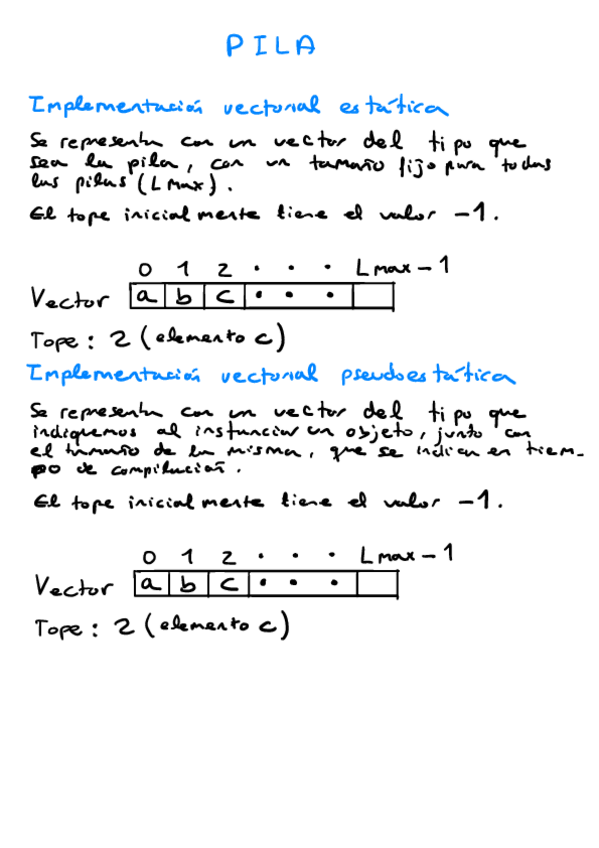 PILA
Implementación vectorial estática
Se representa con un vector del tipo que
sea la pila, con un tamaño fijo para todas
las pilas (LMax).
El tope inicialmente tiene el valor -1.
0 1 2 · · · Lmax-1
Vector a b c · · ·
Tope: 2 (elemento c)
Implementación vectorial pseudoestática
Se representa con un vector del tipo que
indiquemos al instanciar un objeto, junto con
el tamaño de la misma, que se indica en tiem-
po de compilación.
El tope inicialmente tiene el valor -1.
0 1 2 · · · Lmax-1
Vector a b c · · ·
Tope: 2 (elemento c)